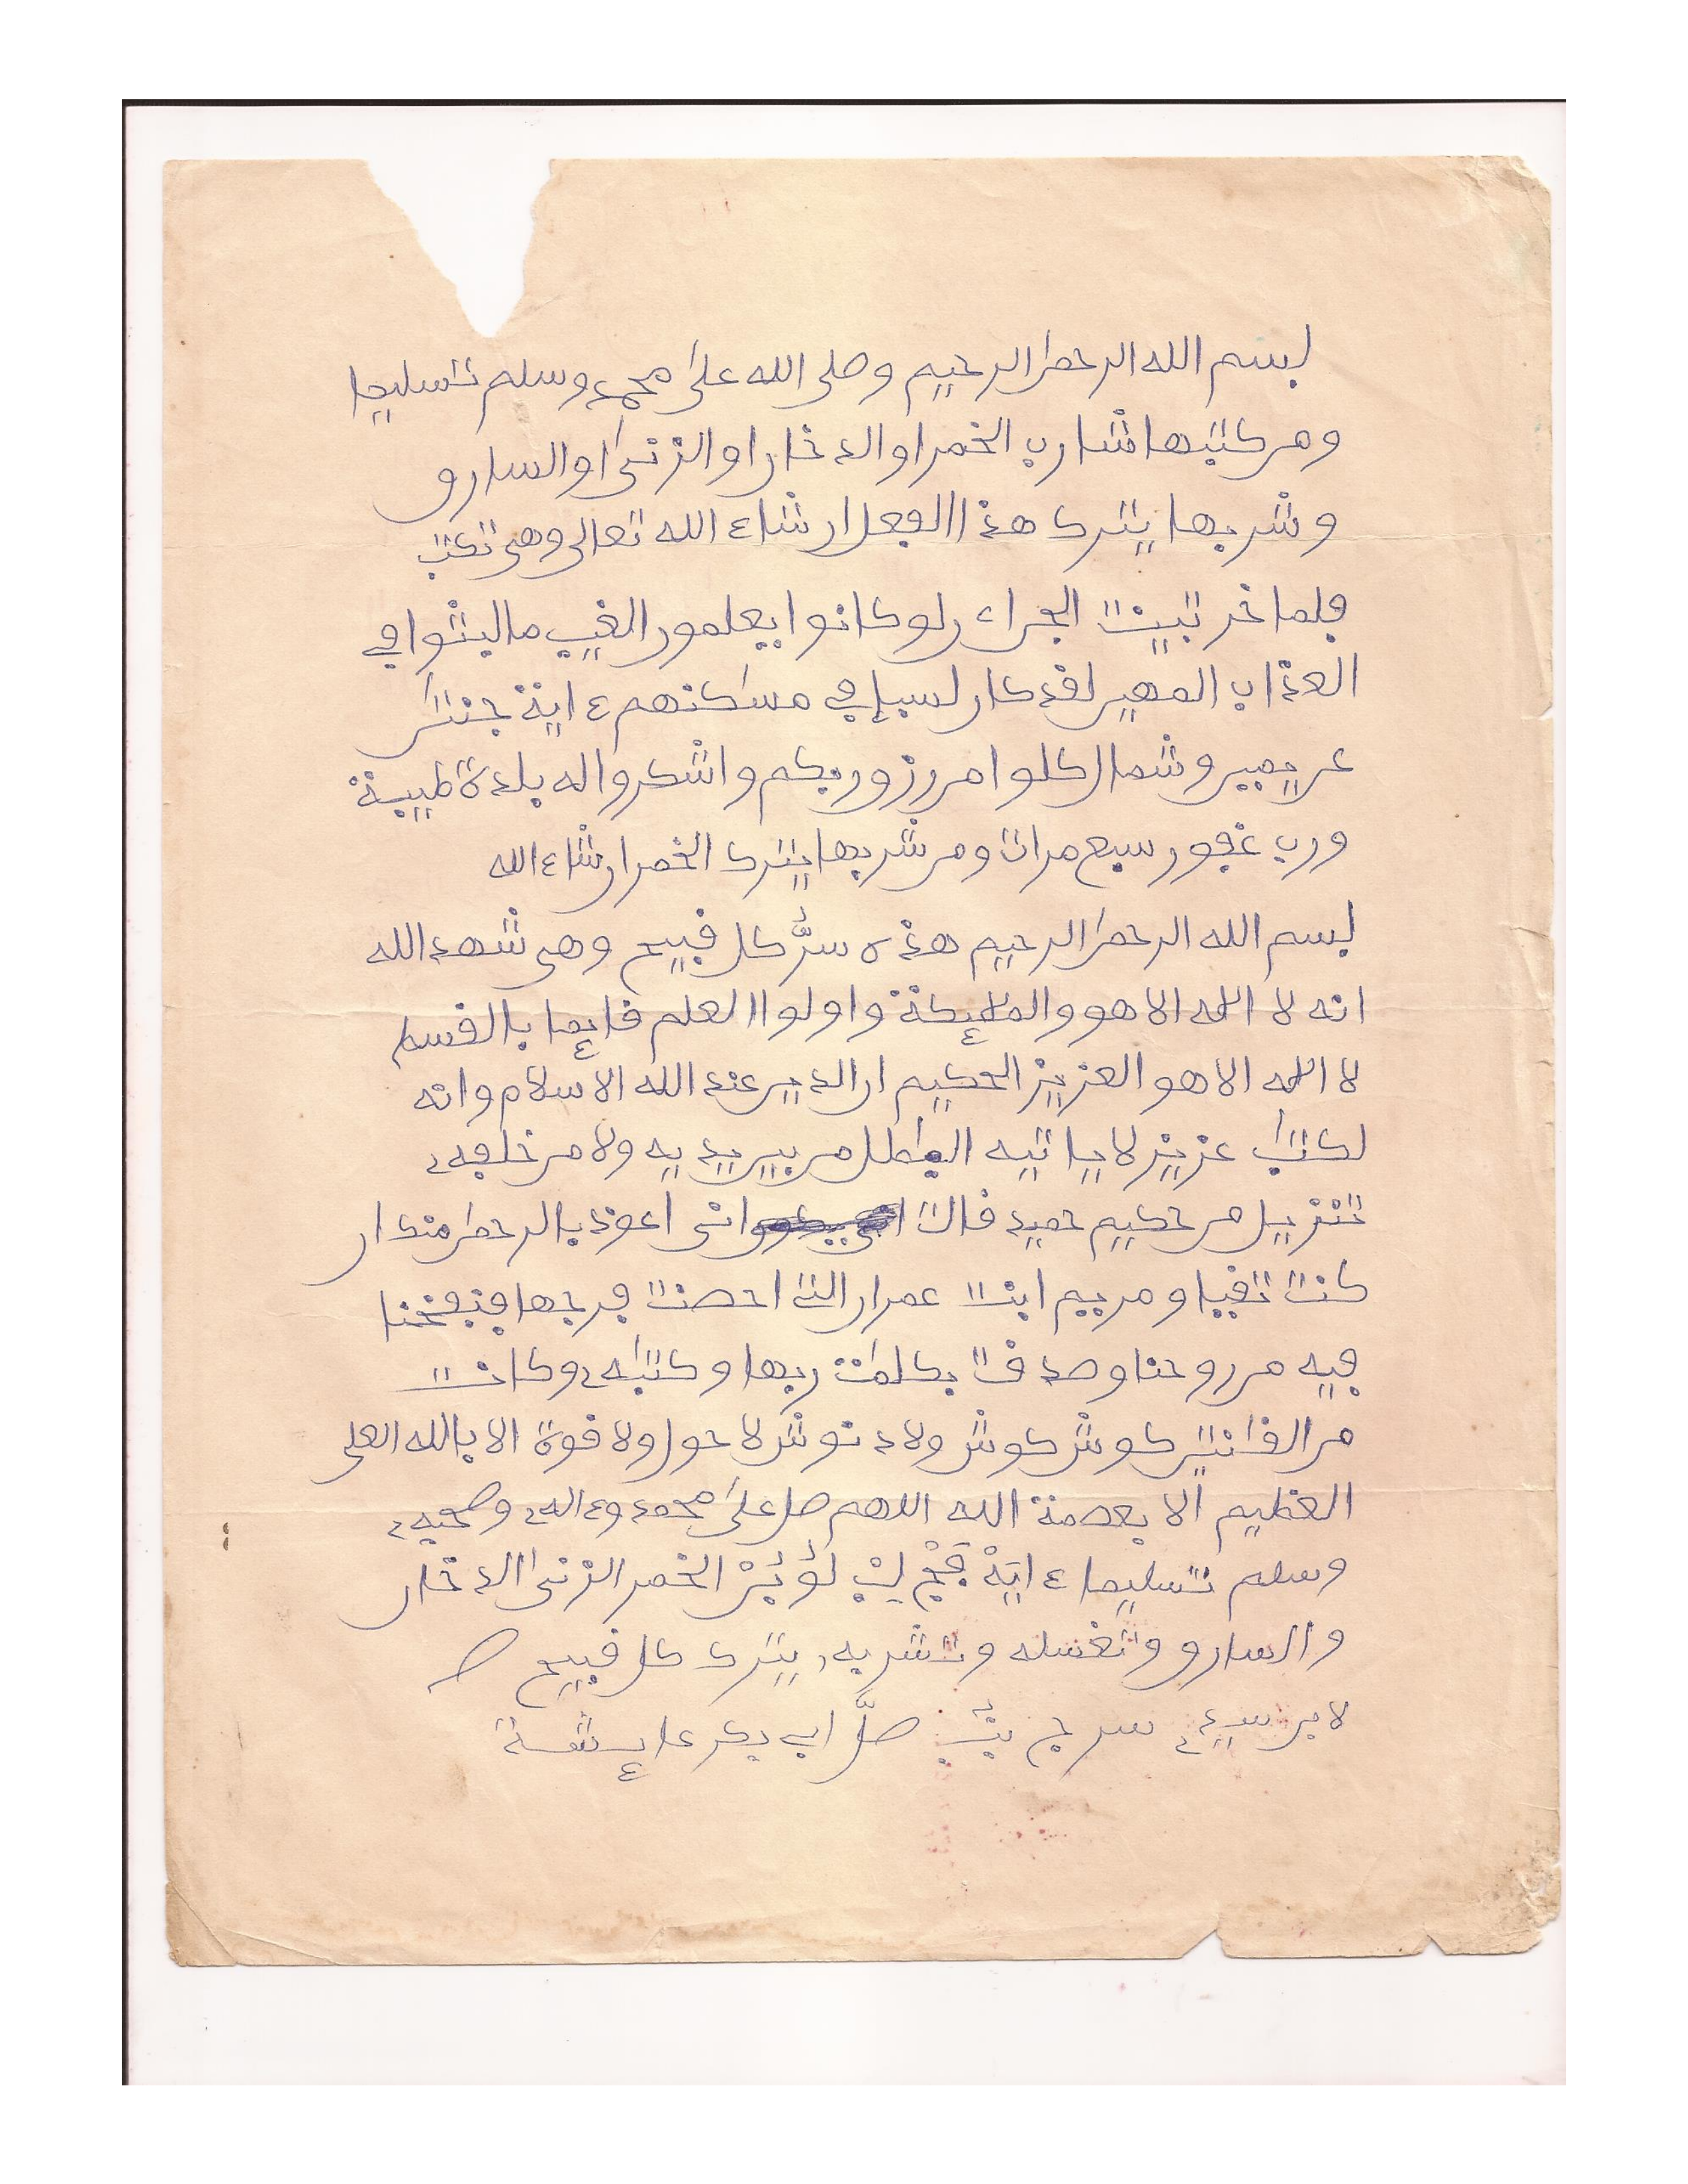 بسم الله الرحمن الرحيم وصلى الله على محمد وسلم تسليما
ومن كتبها شارب الخمر او الدخان او الزنى او السارق
وشربها يترك هذا الفعل ان شاء الله تعالى وهى تكتب
فلما خر تبينت الجن ان لو كانوا يعلمون الغيب ما لبثوا في
العذاب المهين لقد كان لسبإ في مسكنهم ءاية جنتن
عن يمين وشمال كلوا من رزق ربكم واشكروا له بلدة طيبة
ورب غفور سبع مرات ومن شربها يترك الخمر ان شاء الله
بسم الله الرحمن الرحيم هذه سر كل قبيح وهى شهد الله
انه لا اله الا هو والمليكة واولوا العلم قايما بالقسط
لا اله الا هو العزيز الحكيم ان الدين عند الله الاسلام وانه
لكتب عزيز لا ياتيه البطل من بين يديه ولا من خلفه
تنزيل من حكيم حميد قالت انى اعوذ بالرحمن منك ان
كنت تقيا ومريم ابنت عمران التى احصنت فرجها فنفخنا
فيه من روحنا وصدقت بكلمت ربها وكتبه وكانت
من القنتين كوش كوش ولا دنوش لا حول ولا قوة الا بالله العلى
العظيم الا بعصمة الله اللهم صل على محمد وءاله وصحبه
وسلم تسليما ءاية الخمر الزنى الدخان
والسارق وتغسله وتشربه يترك كل قبيح
ابى بكر عايشة